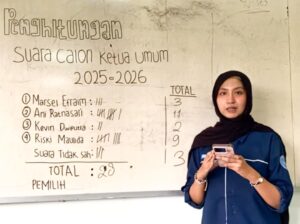 PENGHITUNGAN
SUARA CALON KETUA UMUM
2025-2026
TOTAL
① Marsel Efraim : III 3
② Ani Ratnasari : 11
③ Kevin : II 2
④ Riski Maulida : 9
Suara Tidak sah : III 3
TOTAL :
PEMILIH